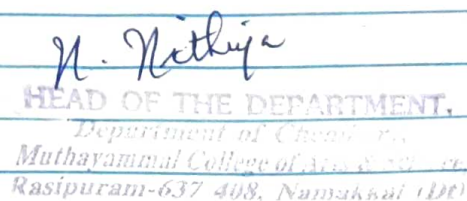 N. Nithiya
HEAD OF THE DEPARTMENT,
Department of
Muthayammal College of Arts &
Rasipuram-637 408, Namakkal (Dt)